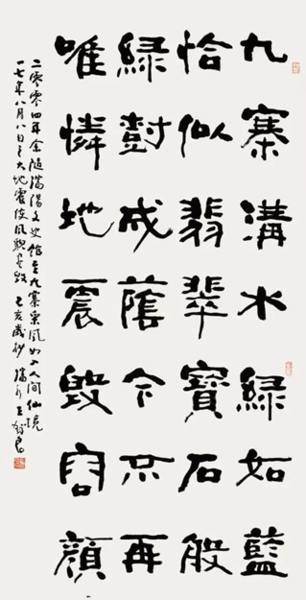 九寨溝水綠如藍
恰似翡翠寶石般
綠樹成蔭今不再
唯憐地震毀容顏
二零零四年余随瀋陽文史館至九寨采風如入人间仙境
一七年八月八日之大地震使风貌尽毁 己亥歲杪